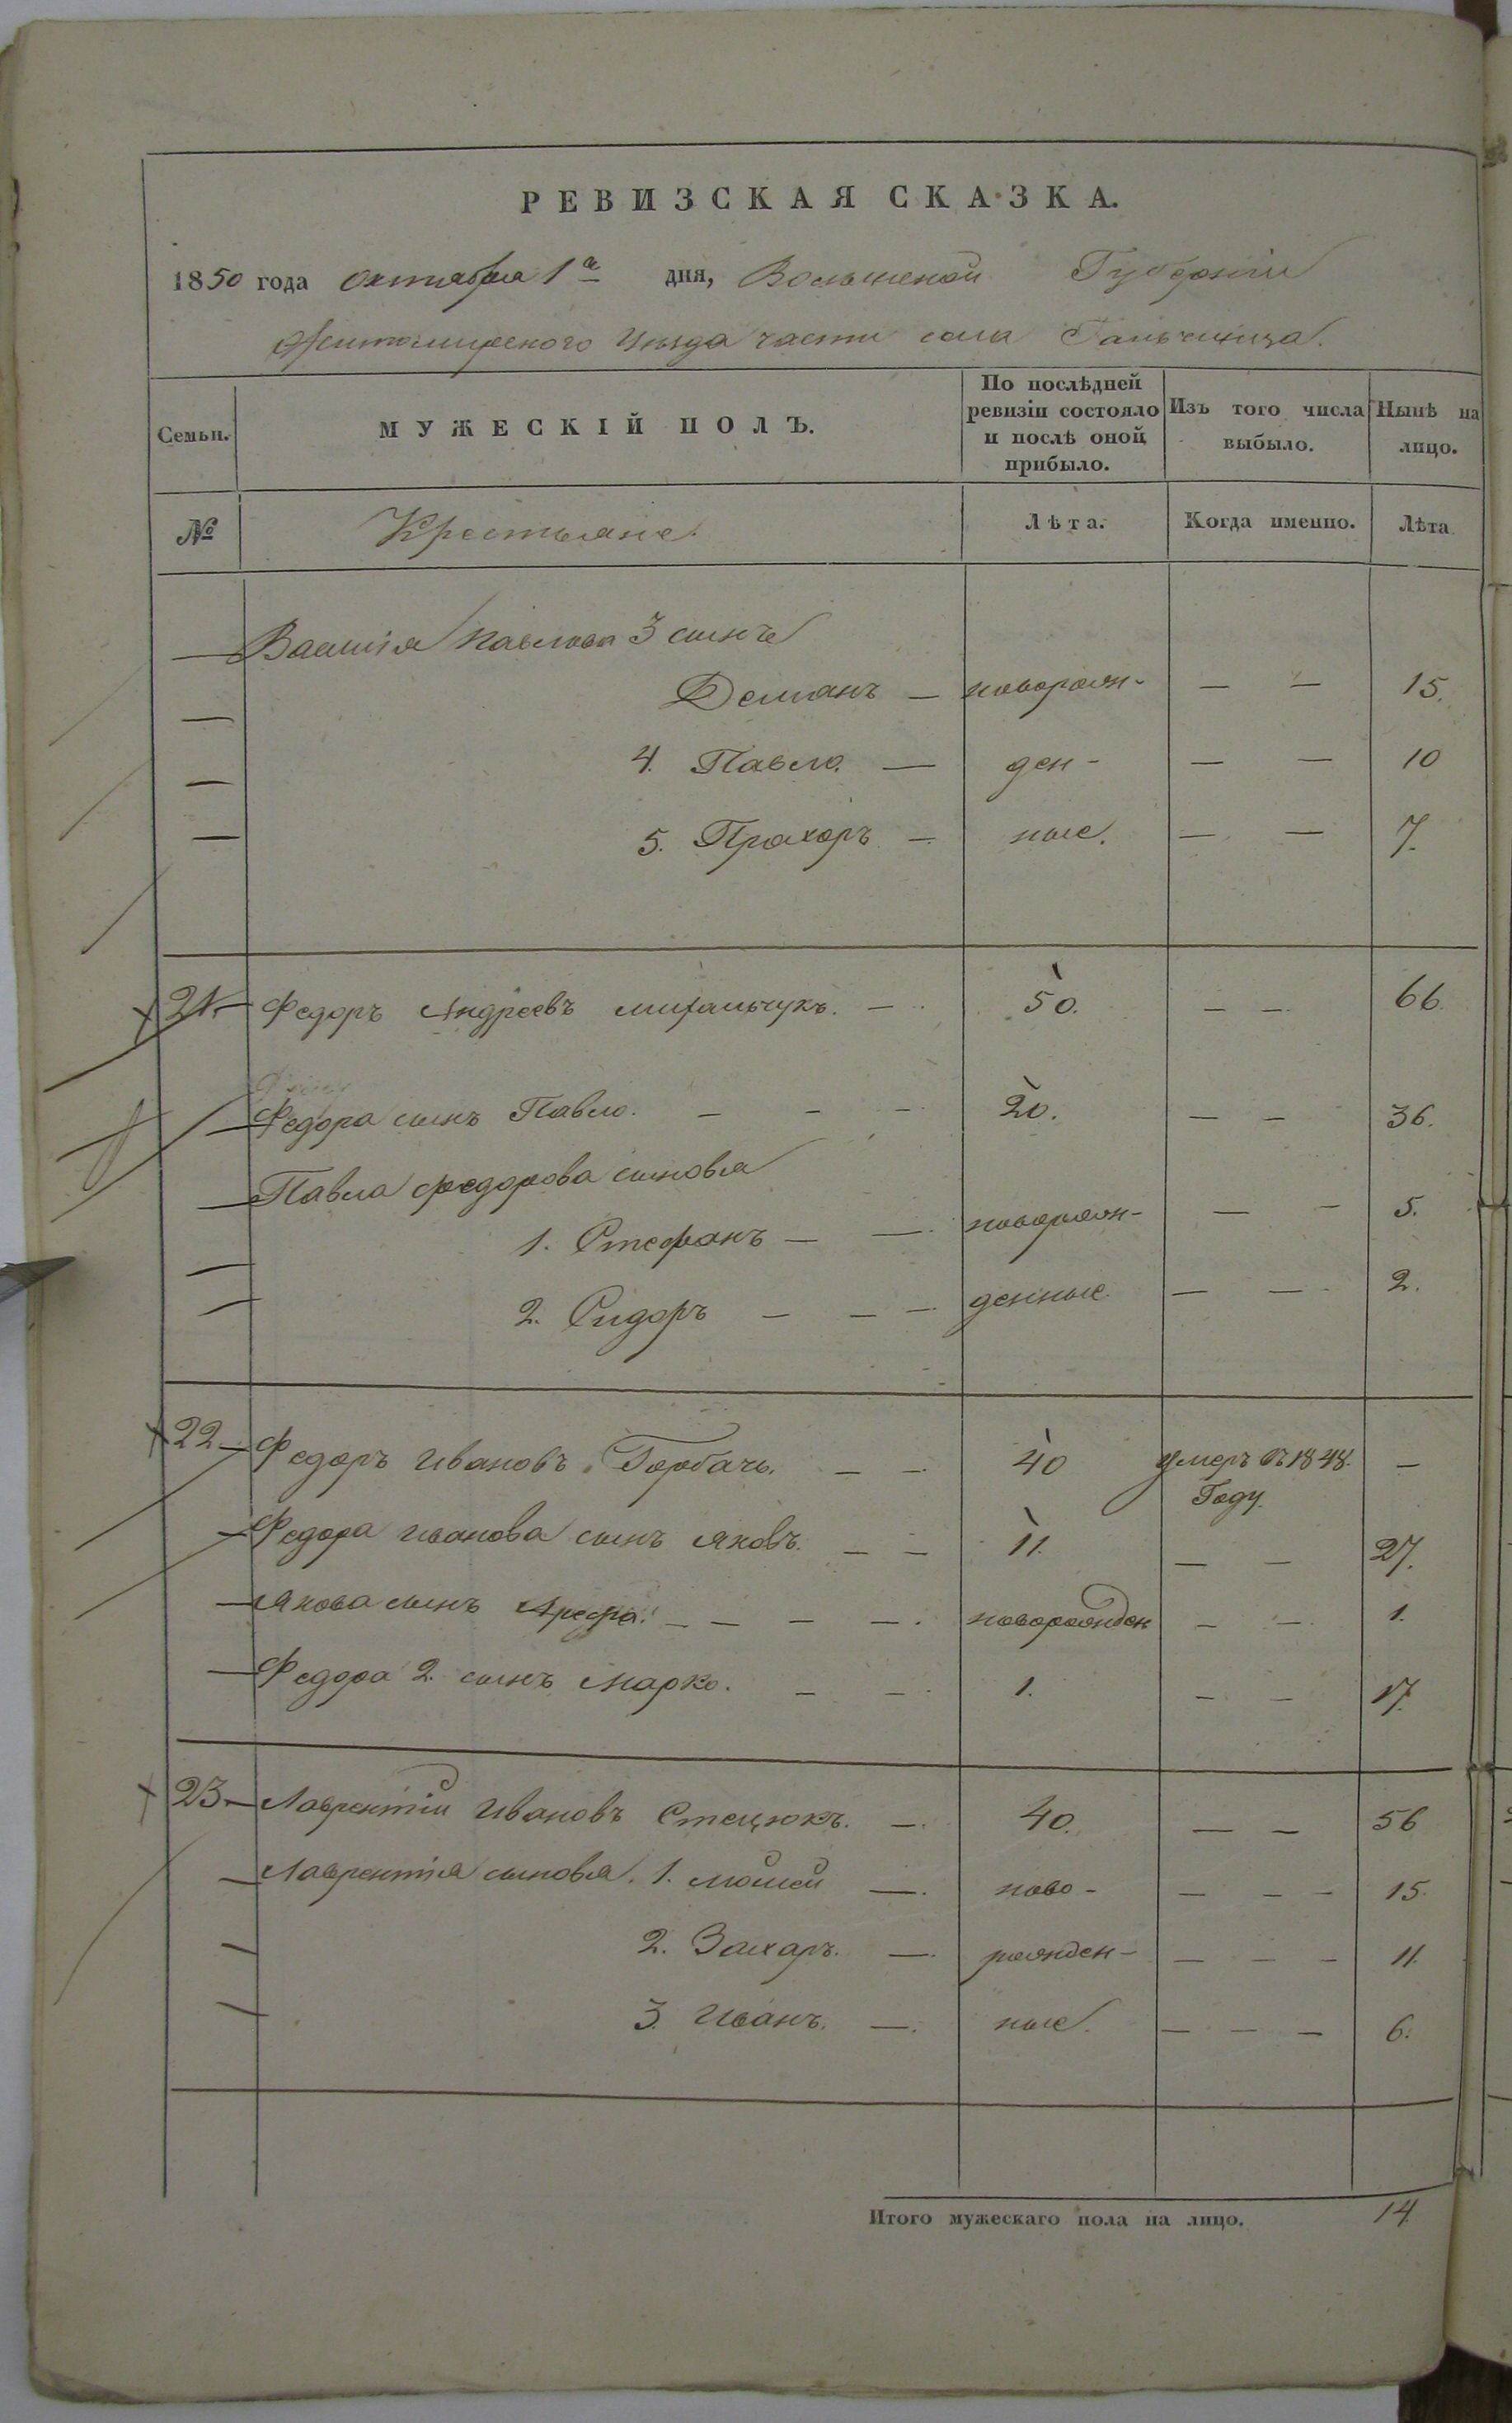 РЕВИЗСКАЯ СКАЗКА.
1850 года октября 1го дня, Волынской Губернiи
Житомирского Уезда части села
Семьи. МУЖЕСКIЙ ПОЛЪ. По послѣдней ревизiи состояло и послѣ оной прибыло. Изъ того числа выбыло. Нынѣ на лицо.
№ Крестьяне. Лѣта. Когда именно. Лѣта
Василiя Павлова 3 сынъ
Демянъ — новорож- — — 15.
4. Павло. — ден- — — 10
5. Прохоръ — ные. — — 7.
21. Федоръ Андреевъ Михальчукъ. — 50. — — 66.
Федора сынъ Павло. — — — 20. — — 36.
Павла федорова сыновья
1. Стефанъ — — новорож- — — 5.
2. Сидоръ — — — денные. — — 2.
22 Федоръ Ивановъ Горбачъ. — — 40 умеръ въ 1848. —
Году.
Федора иванова сынъ яковъ. — — 11. — — 27.
Якова сынъ Арефа. — — — — новорожден — — 1.
Федора 2. сынъ Марко. — — 1. — — 17.
23 Лаврентiй Ивановъ Стецюкъ. — 40. — — 56
Лаврентiя сыновья. 1. Мойсей — ново- — — — 15.
2. Захаръ. — рожден- — — — 11.
3. Иванъ. — ные. — — — 6.
Итого мужескаго пола на лицо. 14.